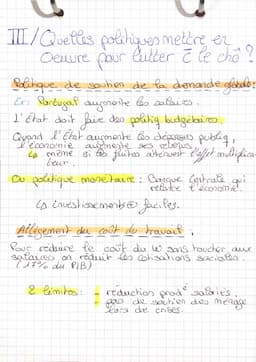 III/ Quelles politiques mettre en
oeuvre pour lutter c̄ le chô ?
Politique de soutien de la demande globale :
Ex : Portugal augmente les salaires.
L'État doit faire des politiq budgétaires.
Quand l'État augmente les dépenses publiq,
l'économie augmente ses
↳ même si des fuites atténuent l'effet multiplica-
teur.
Ou politique monétaire : Banque Centrale qui
relance l'économie.
↳ investissements ⊕ faciles.
Allègement du coût du travail.
Pour réduire le coût du W sans toucher aux
salaires on réduit les cotisations sociales.
(17% du PIB)
2 limites : - réduction prodé salariés.
- pas de soutien des ménage
lors de crises.